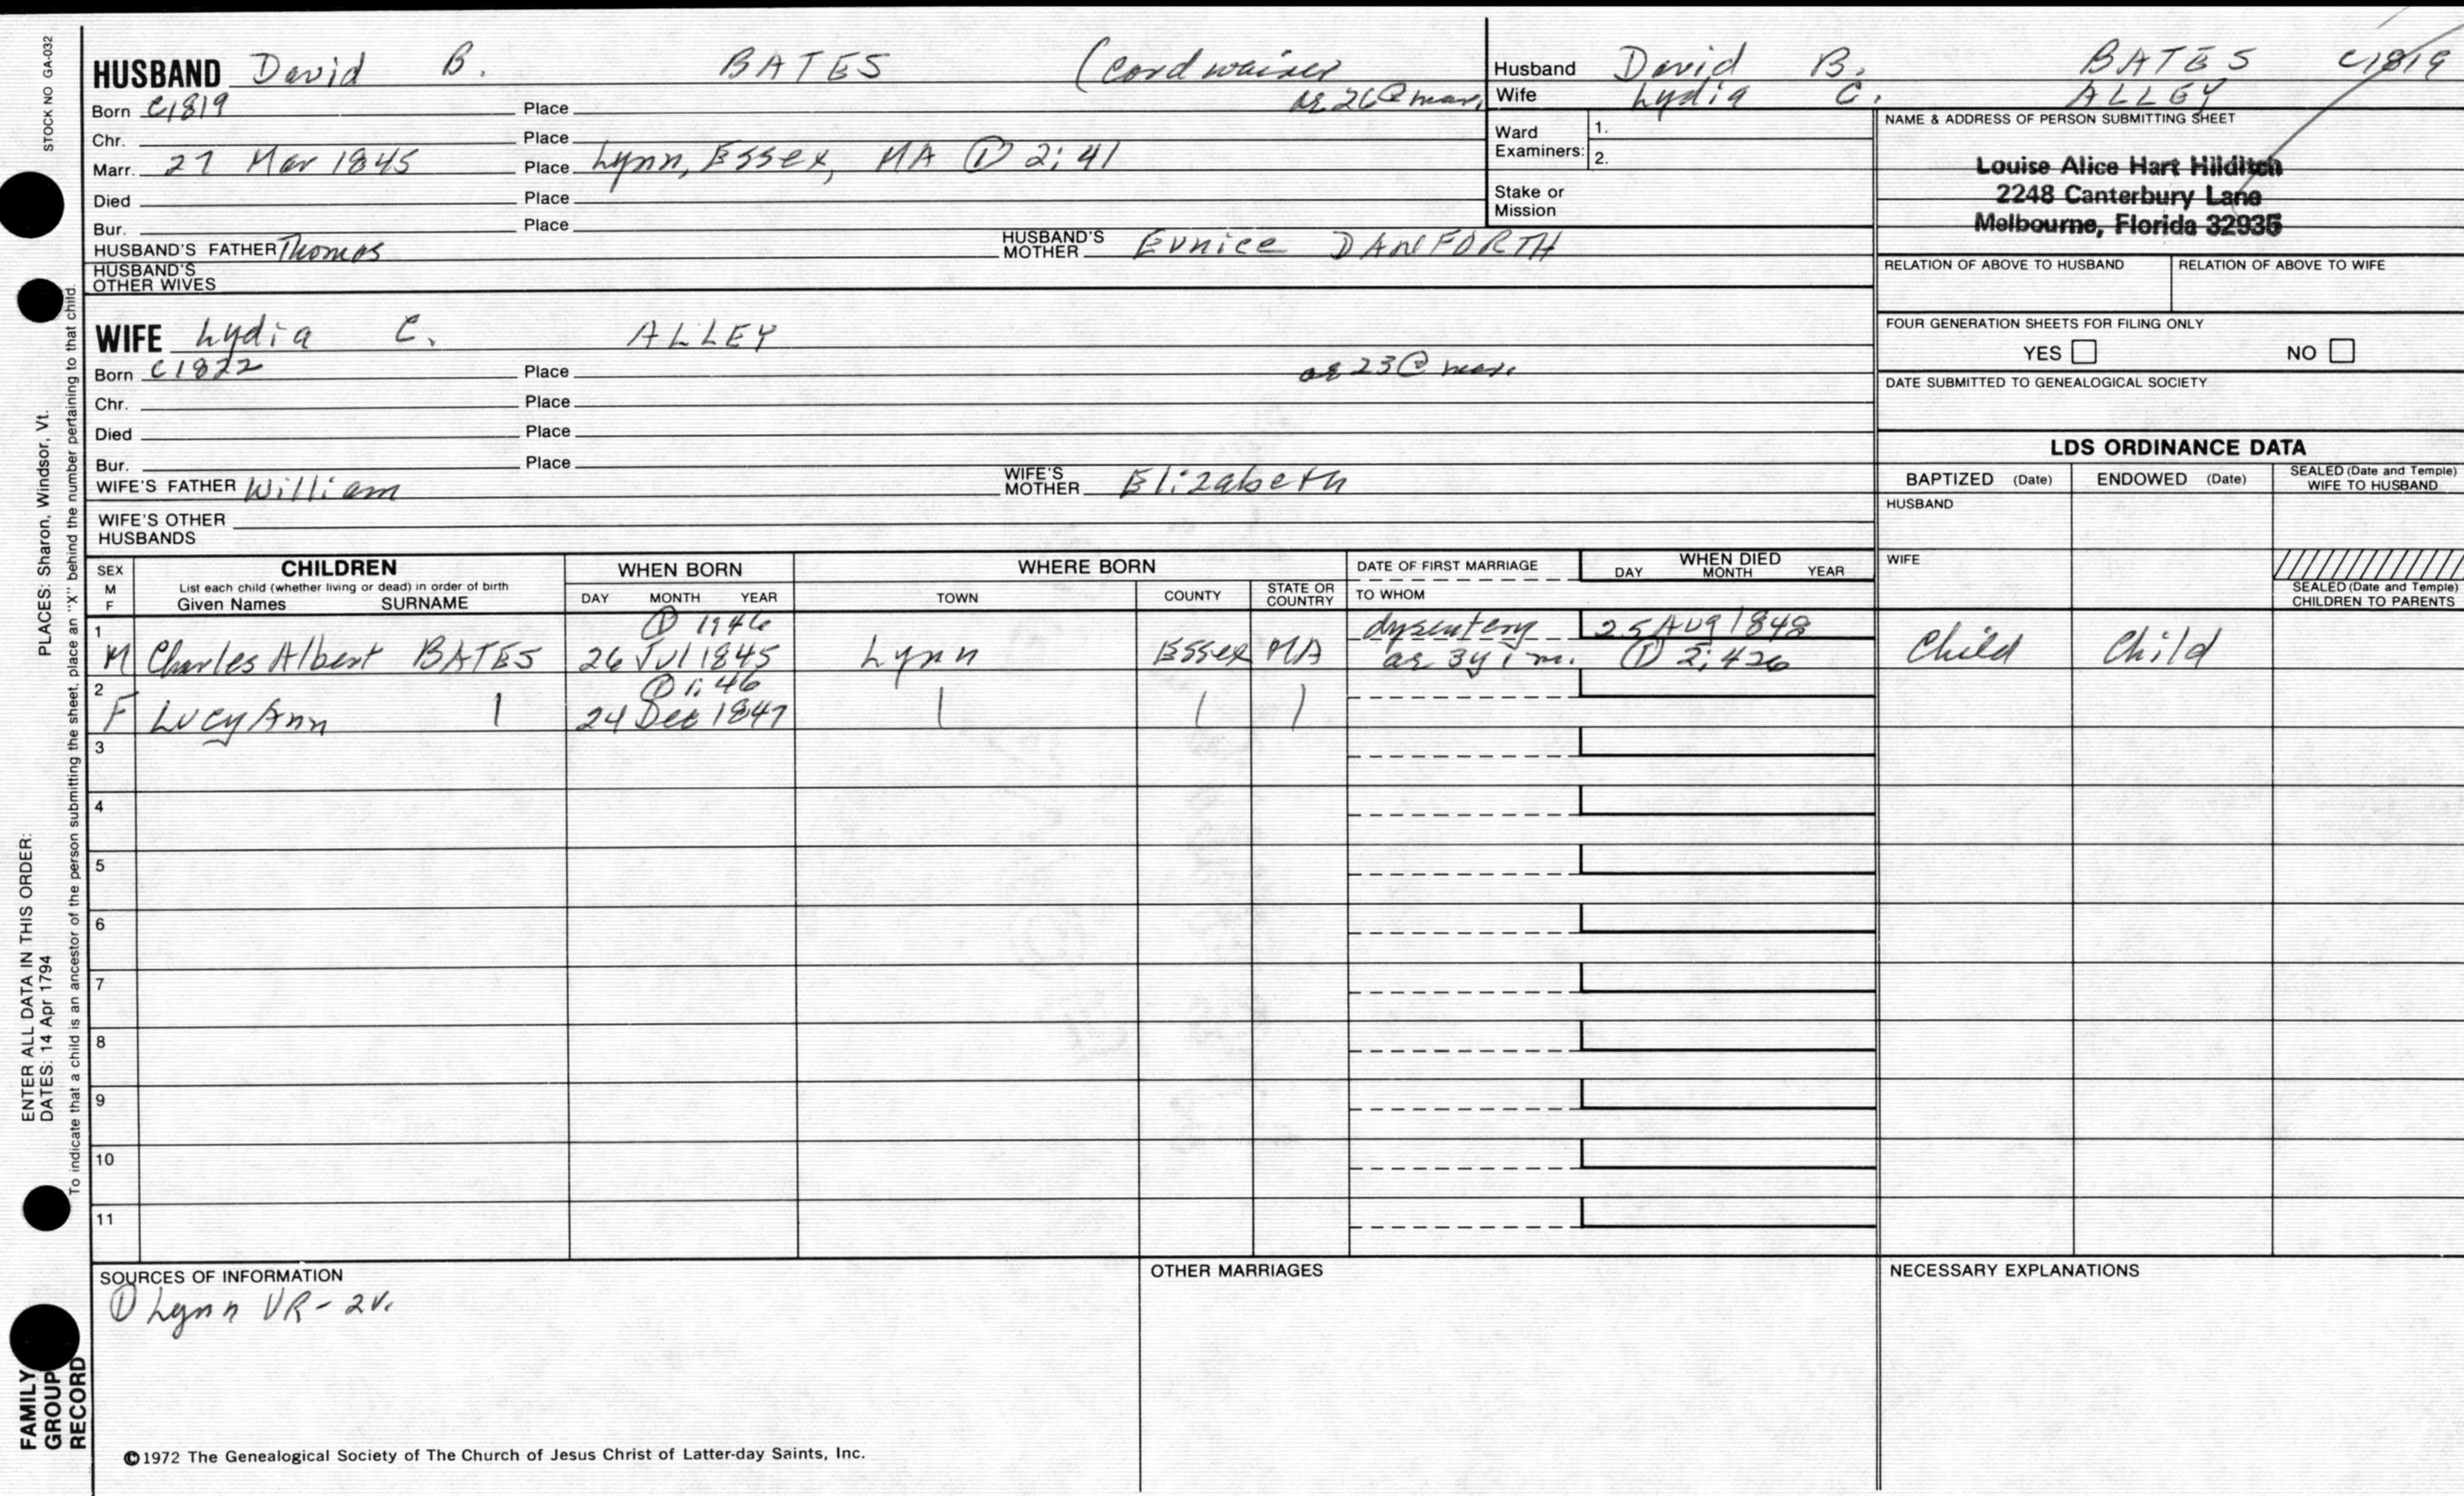 STOCK NO GA-032
HUSBAND David B. BATES (cordwainer
Born C1819 Place ae 26 @ mar.
Chr. Place
Marr. 27 Mar 1845 Place Lynn, Essex, MA ① 2:41
Died Place
Bur. Place
HUSBAND'S FATHER Thomas HUSBAND'S MOTHER Eunice DANFORTH
HUSBAND'S OTHER WIVES
WIFE Lydia C. ALLEY
Born C1822 Place ae 23 @ mar.
Chr. Place
Died Place
Bur. Place
WIFE'S FATHER William WIFE'S MOTHER Elizabeth
WIFE'S OTHER HUSBANDS
Husband David B. BATES C1819
Wife Lydia C. ALLEY
Ward Examiners: 1.
2.
Stake or Mission
NAME & ADDRESS OF PERSON SUBMITTING SHEET
Louise Alice Hart Hilditch
2248 Canterbury Lane
Melbourne, Florida 32935
RELATION OF ABOVE TO HUSBAND RELATION OF ABOVE TO WIFE
FOUR GENERATION SHEETS FOR FILING ONLY
YES NO
DATE SUBMITTED TO GENEALOGICAL SOCIETY
LDS ORDINANCE DATA
BAPTIZED (Date) ENDOWED (Date) SEALED (Date and Temple) WIFE TO HUSBAND
HUSBAND
WIFE
SEALED (Date and Temple) CHILDREN TO PARENTS
SEX M F
CHILDREN
List each child (whether living or dead) in order of birth
Given Names SURNAME
WHEN BORN
DAY MONTH YEAR
WHERE BORN
TOWN COUNTY STATE OR COUNTRY
DATE OF FIRST MARRIAGE
TO WHOM
WHEN DIED
DAY MONTH YEAR
1 ① 1:46 dysentery 25 Aug 1848
M Charles Albert BATES 26 Jul 1845 Lynn Essex MA ae 3y 1 m. ① 2:426 Child Child
2 ① 1:46
F Lucy Ann | 24 Dec 1847 | | |
3
4
5
6
7
8
9
10
11
SOURCES OF INFORMATION
① Lynn VR - 2v.
OTHER MARRIAGES
NECESSARY EXPLANATIONS
©1972 The Genealogical Society of The Church of Jesus Christ of Latter-day Saints, Inc.
ENTER ALL DATA IN THIS ORDER:
DATES: 14 Apr 1794
PLACES: Sharon, Windsor, Vt.
To indicate that a child is an ancestor of the person submitting the sheet, place an "X" behind the number pertaining to that child.
FAMILY
GROUP
RECORD